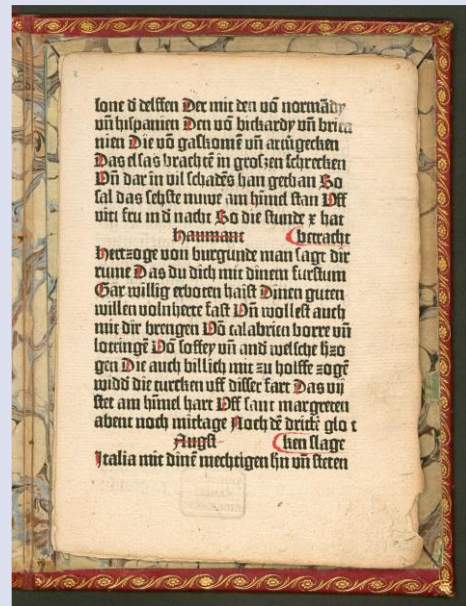 lone d̄ delffen Der mit den vō normādy
vñ hispanien Den vō bickardy vñ brita
nien Die vō gaskonie vñ artūgecken
Das elsas brachtē in groszen schrecken
Vñ dar in vil schadēs han gethan So
sal das sehste nuwe am hīmel stan Vff
vier fru in d̄ nacht So die stunde x hat
haumant betracht
Hertzoge von burgunde man sagt dir
rume Das du dich mit dinem furstum
Gar willig erboten haist Dinen guten
willen volnherte fast Vñ wollest auch
mit dir brengen Vō calabrien borre vñ
lottringē Vō soffey vñ and̄ welsche h̄zo
gen Die auch billich mit zu holffe zogē
widd̄ die turcken vff disser fart Das vij
stet am hīmel hart Vff sant margreten
abent noch mittage Noch dē drittē glo
Augst cken slage
Italia mit dinē mechtigen h̄n vñ steten